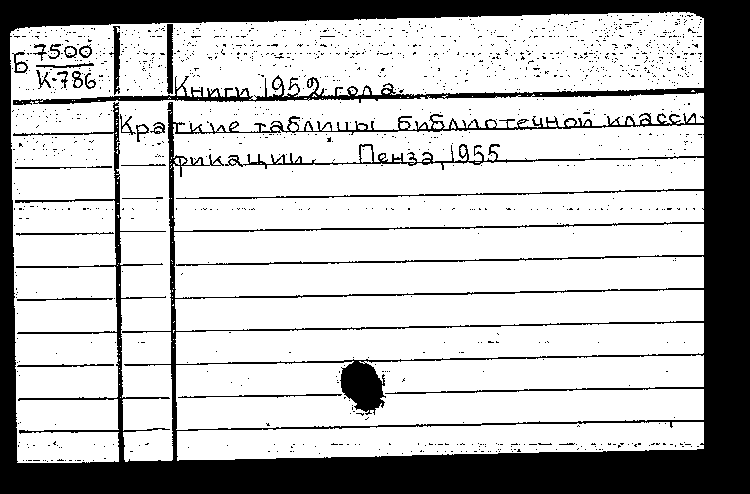 Б 7500
К-786
Книги 1952 года.
Краткие таблицы библиотечной класси-
фикации. Пенза, 1955